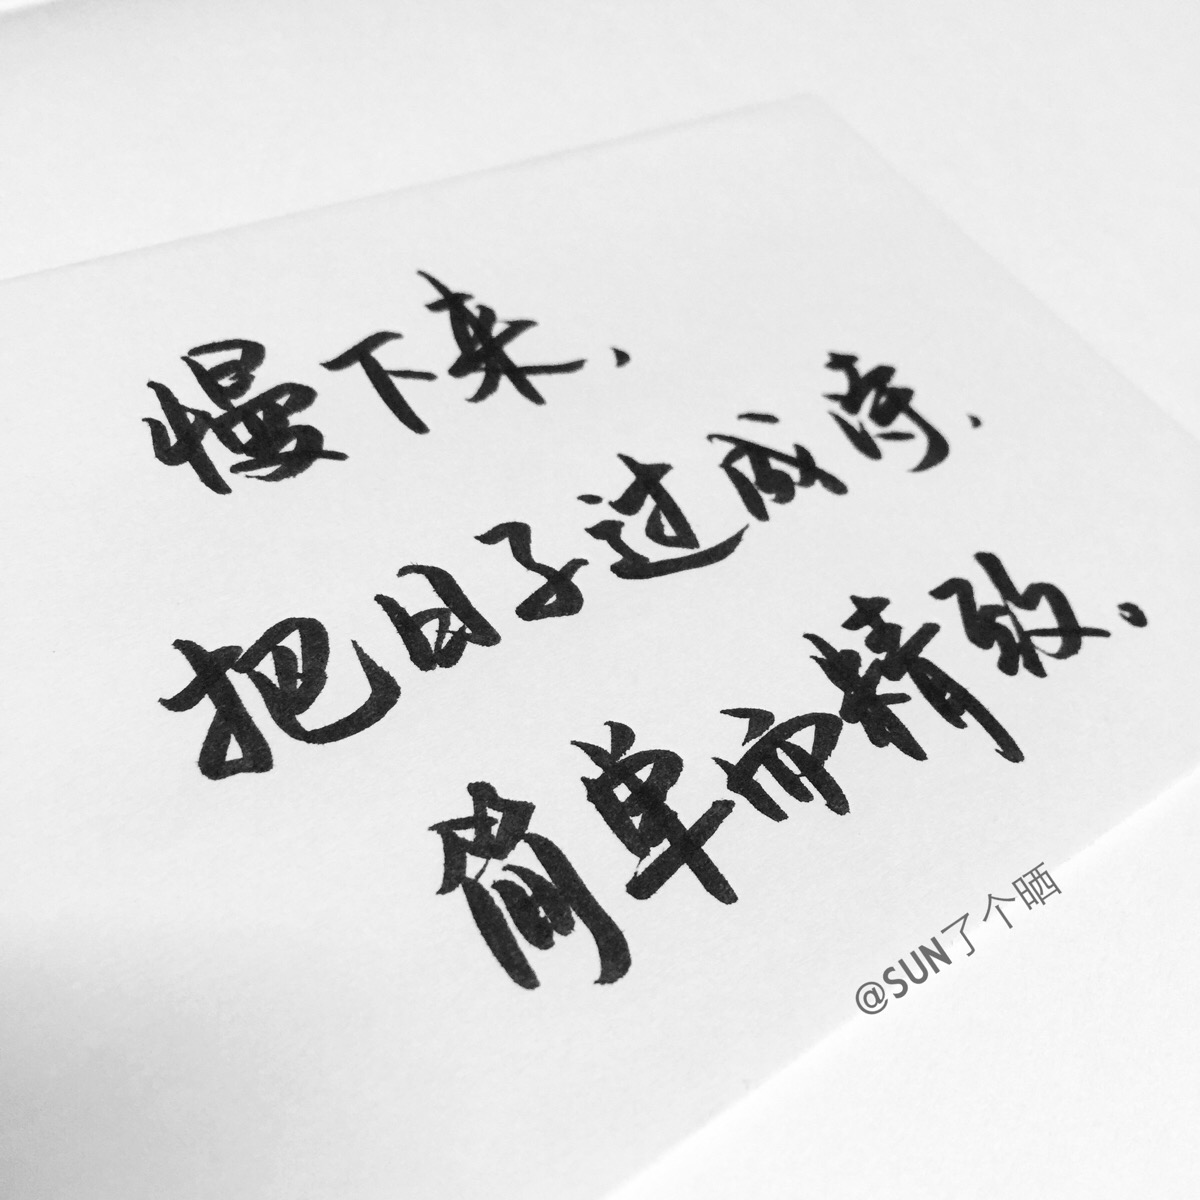 慢下来，
把日子过成诗，
简单而精致。
@SUN了个晒